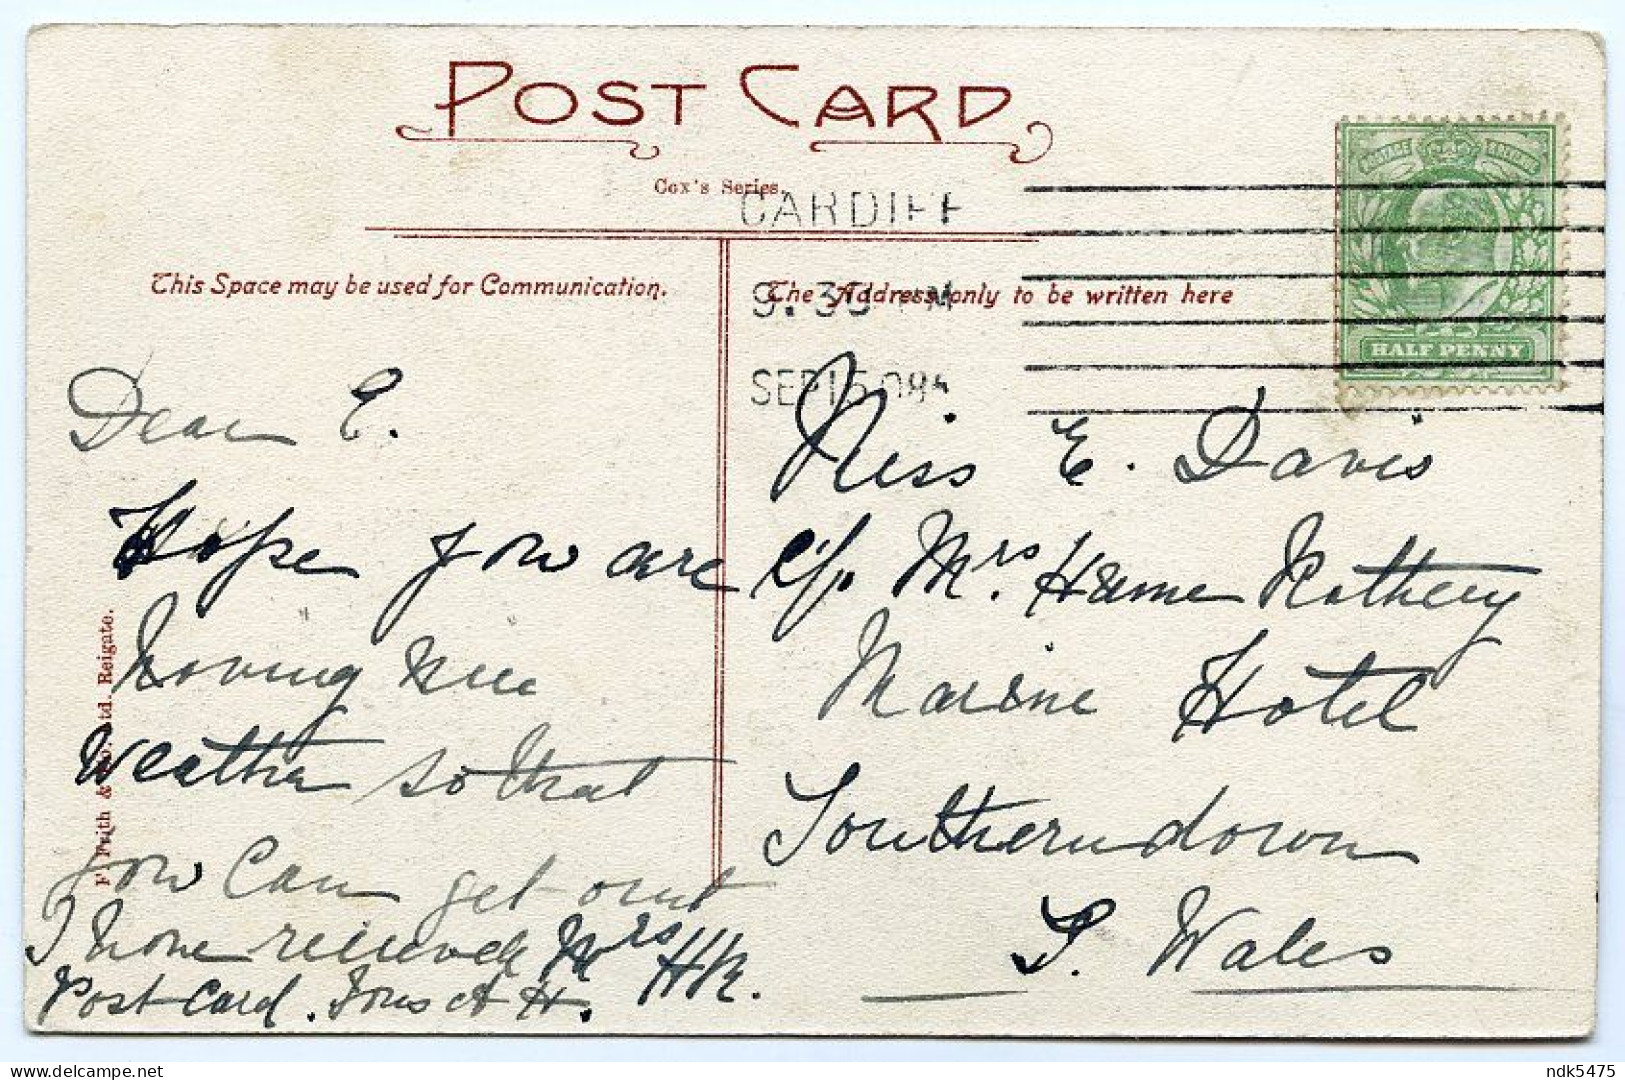 POST CARD
Cox's Series.
CARDIFF
9.30 PM
SEP 15 08
POSTAGE REVENUE
HALF PENNY
This Space may be used for Communication.
The Address only to be written here
Dear E.
Hope you are
having nice
Weather so that
you can get out
I have received Mrs HR.
Post Card. Yours A H.
Miss E. Davis
c/o Mrs. Hume Rothery
Marine Hotel
Southerndown
S. Wales
F. Frith & Co. Ltd. Reigate.
ndk5475